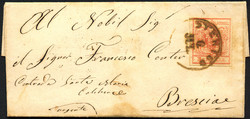 Al Nobil Sig
il Signor Francesco Conter
Contrada Santa Maria
Calchera
Brescia